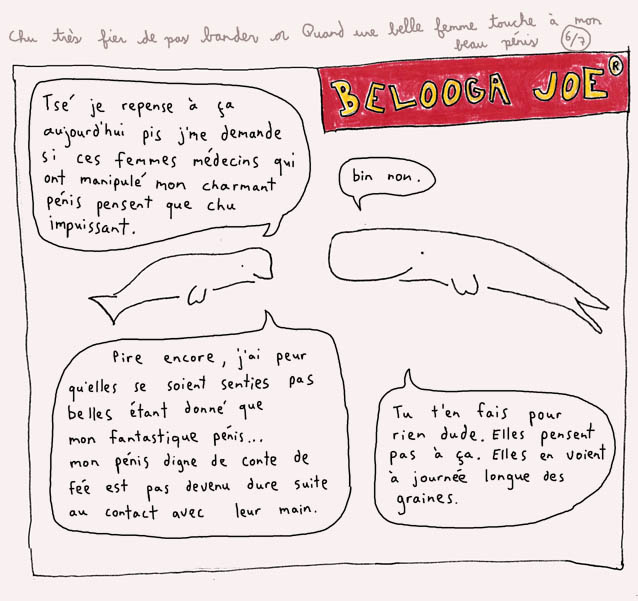 Chu très fier de pas bander or Quand une belle femme touche à mon
beau pénis 6/7
BELOOGA JOE®
Tsé je repense à ça
aujourd'hui pis j'me demande
si ces femmes médecins qui
ont manipulé mon charmant
pénis pensent que chu
impuissant.
bin non.
Pire encore, j'ai peur
qu'elles se soient senties pas
belles étant donné que
mon fantastique pénis...
mon pénis digne de conte de
fée est pas devenu dure suite
au contact avec leur main.
Tu t'en fais pour
rien dude. Elles pensent
pas à ça. Elles en voient
à journée longue des
graines.